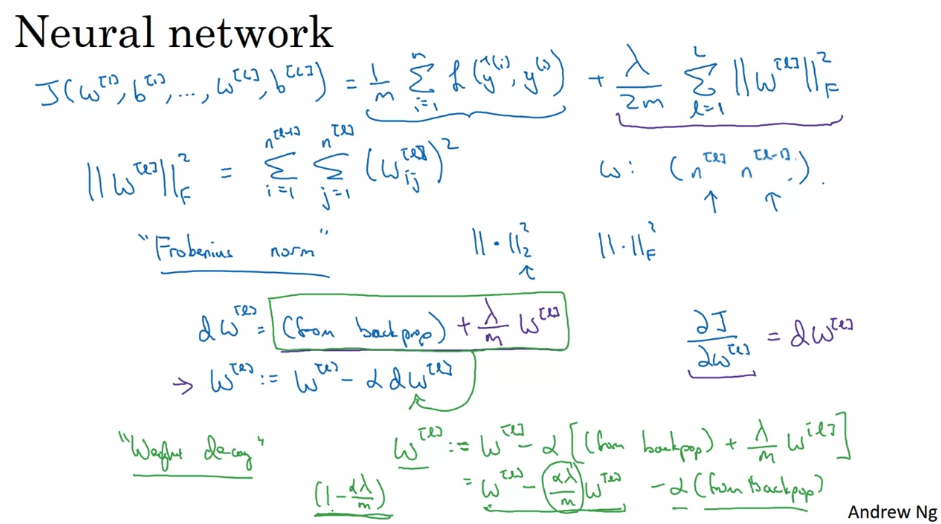 Neural network
J(w^[1], b^[1], ..., w^[L], b^[L]) = 1/m Σ_{i=1}^{m} L(ŷ^(i), y^(i)) + λ/2m Σ_{l=1}^{L} ||w^[l]||²_F
||w^[l]||²_F = Σ_{i=1}^{n^[l-1]} Σ_{j=1}^{n^[l]} (w_ij^[l])² w: (n^[l] n^[l-1]).
"Frobenius norm" ||·||²_2 ||·||²_F
dw^[l] = (from backprop) + λ/m w^[l]
∂J/∂w^[l] = dw^[l]
→ w^[l] := w^[l] - α dw^[l]
"Weight decay" w^[l] := w^[l] - α [(from backpop) + λ/m w^[l]]
(1 - αλ/m) = w^[l] - αλ/m w^[l] - α (from backpop)
Andrew Ng